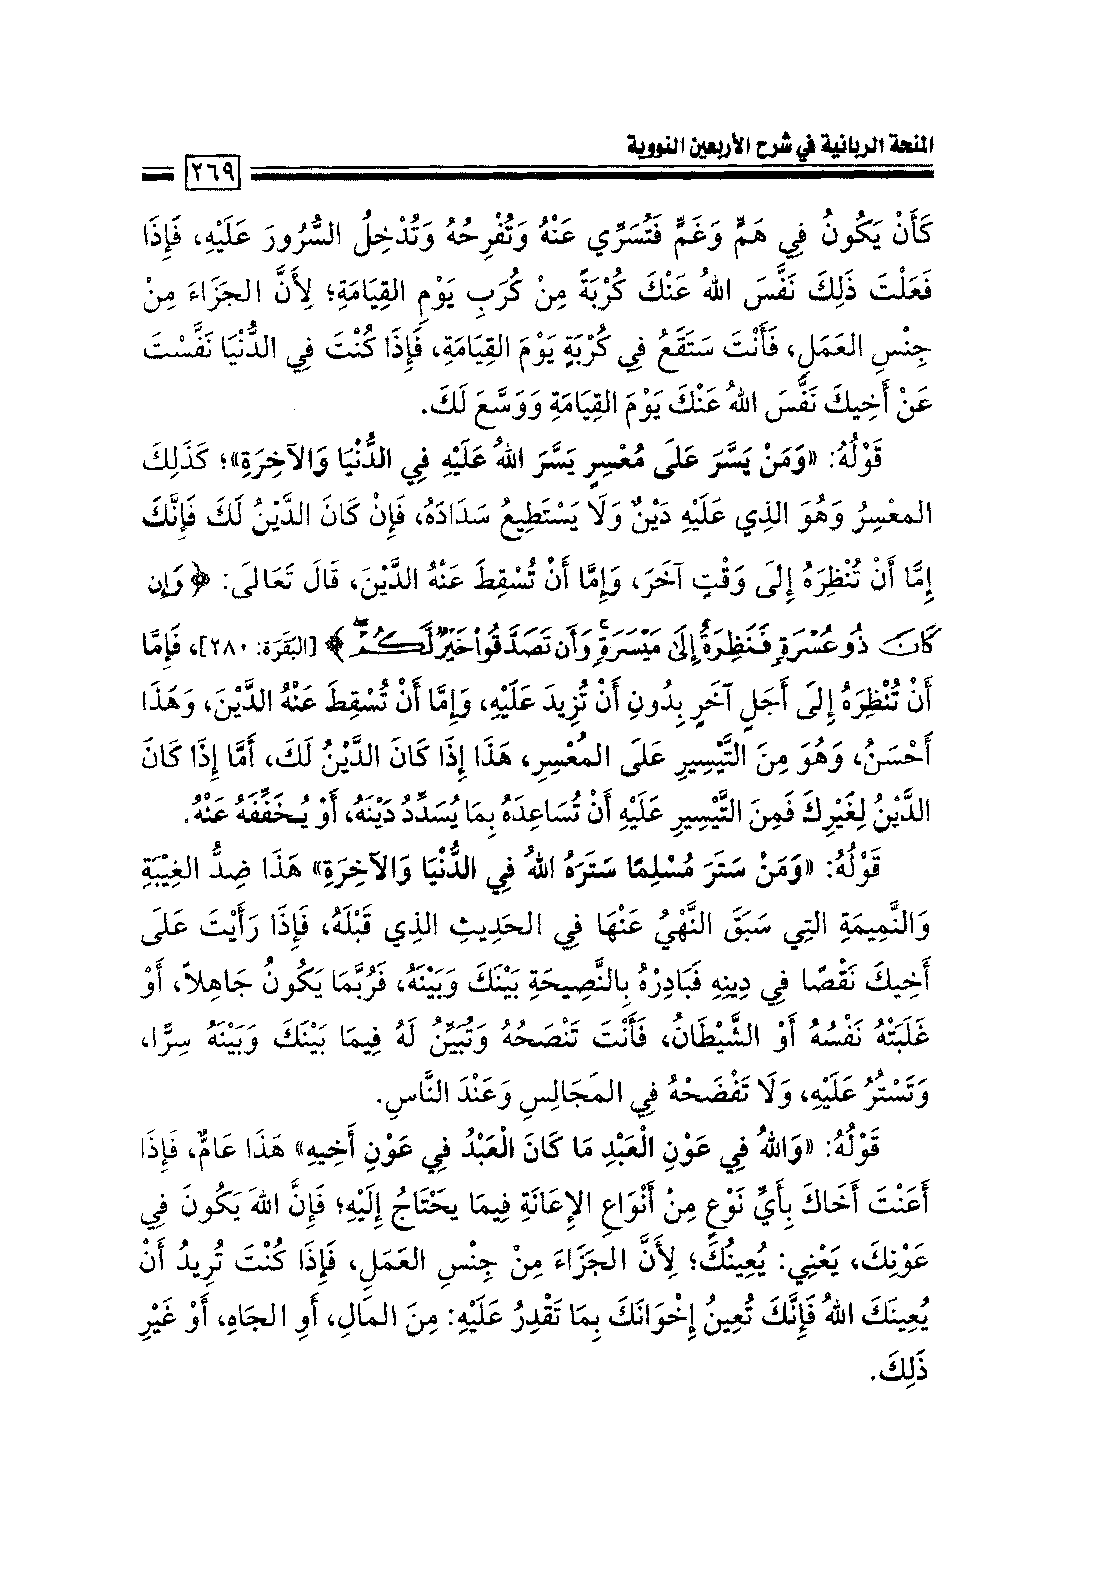 المنحة الربانية في شرح الأربعين النووية
٢٦٩
كَأَنْ يَكُونُ فِي هَمٍّ وَغَمٍّ فَتُسَرِّي عَنْهُ وَتُفْرِحُهُ وَتُدْخِلُ السُّرُورَ عَلَيْهِ، فَإِذَا
فَعَلْتَ ذَلِكَ نَفَّسَ اللهُ عَنْكَ كُرْبَةً مِنْ كُرَبِ يَوْمِ القِيَامَةِ؛ لِأَنَّ الجَزَاءَ مِنْ
جِنْسِ العَمَلِ، فَأَنْتَ سَتَقَعُ فِي كُرْبَةٍ يَوْمَ القِيَامَةِ، فَإِذَا كُنْتَ فِي الدُّنْيَا نَفَّسْتَ
عَنْ أَخِيكَ نَفَّسَ اللهُ عَنْكَ يَوْمَ القِيَامَةِ وَوَسَّعَ لَكَ.
قَوْلُهُ: «وَمَنْ يَسَّرَ عَلَى مُعْسِرٍ يَسَّرَ اللهُ عَلَيْهِ فِي الدُّنْيَا وَالآخِرَةِ»؛ كَذَلِكَ
المعْسِرُ وَهُوَ الذِي عَلَيْهِ دَيْنٌ وَلَا يَسْتَطِيعُ سَدَادَهُ، فَإِنْ كَانَ الدَّيْنُ لَكَ فَإِنَّكَ
إِمَّا أَنْ تُنْظِرَهُ إِلَى وَقْتٍ آخَرَ، وَإِمَّا أَنْ تُسْقِطَ عَنْهُ الدَّيْنَ، قَالَ تَعَالَى: ﴿وَإِن
كَانَ ذُو عُسْرَةٍ فَنَظِرَةٌ إِلَىٰ مَيْسَرَةٍ وَأَن تَصَدَّقُوا خَيْرٌ لَّكُمْ﴾ [البَقَرَة: ٢٨٠]، فَإِمَّا
أَنْ تُنْظِرَهُ إِلَى أَجَلٍ آخَرٍ بِدُونِ أَنْ تُزِيدَ عَلَيْهِ، وَإِمَّا أَنْ تُسْقِطَ عَنْهُ الدَّيْنَ، وَهَذَا
أَحْسَنُ، وَهُوَ مِنَ التَّيْسِيرِ عَلَى المُعْسِرِ، هَذَا إِذَا كَانَ الدَّيْنُ لَكَ، أَمَّا إِذَا كَانَ
الدَّيْنُ لِغَيْرِكَ فَمِنَ التَّيْسِيرِ عَلَيْهِ أَنْ تُسَاعِدَهُ بِمَا يُسَدِّدُ دَيْنَهُ، أَوْ يُخَفِّفَهُ عَنْهُ.
قَوْلُهُ: «وَمَنْ سَتَرَ مُسْلِمًا سَتَرَهُ اللهُ فِي الدُّنْيَا وَالآخِرَةِ» هَذَا ضِدُّ الغِيْبَةِ
وَالنَّمِيمَةِ التِي سَبَقَ النَّهْيُ عَنْهَا فِي الحَدِيثِ الذِي قَبْلَهُ، فَإِذَا رَأَيْتَ عَلَى
أَخِيكَ نَقْصًا فِي دِينِهِ فَبَادِرْهُ بِالنَّصِيحَةِ بَيْنَكَ وَبَيْنَهُ، فَرُبَّمَا يَكُونُ جَاهِلاً، أَوْ
غَلَبَتْهُ نَفْسُهُ أَوْ الشَّيْطَانُ، فَأَنْتَ تَنْصَحُهُ وَتُبَيِّنُ لَهُ فِيمَا بَيْنَكَ وَبَيْنَهُ سِرًّا،
وَتَسْتُرُ عَلَيْهِ، وَلَا تَفْضَحْهُ فِي المَجَالِسِ وَعَنْدَ النَّاسِ.
قَوْلُهُ: «وَاللهُ فِي عَوْنِ الْعَبْدِ مَا كَانَ الْعَبْدُ فِي عَوْنِ أَخِيهِ» هَذَا عَامٌّ، فَإِذَا
أَعَنْتَ أَخَاكَ بِأَيِّ نَوْعٍ مِنْ أَنْوَاعِ الإِعَانَةِ فِيمَا يَحْتَاجُ إِلَيْهِ؛ فَإِنَّ اللهَ يَكُونَ فِي
عَوْنِكَ، يَعْنِي: يُعِينُكَ؛ لِأَنَّ الجَزَاءَ مِنْ جِنْسِ العَمَلِ، فَإِذَا كُنْتَ تُرِيدُ أَنْ
يُعِينَكَ اللهُ فَإِنَّكَ تُعِينُ إِخْوَانَكَ بِمَا تَقْدِرُ عَلَيْهِ: مِنَ المَالِ، أَوِ الجَاهِ، أَوْ غَيْرِ
ذَلِكَ.